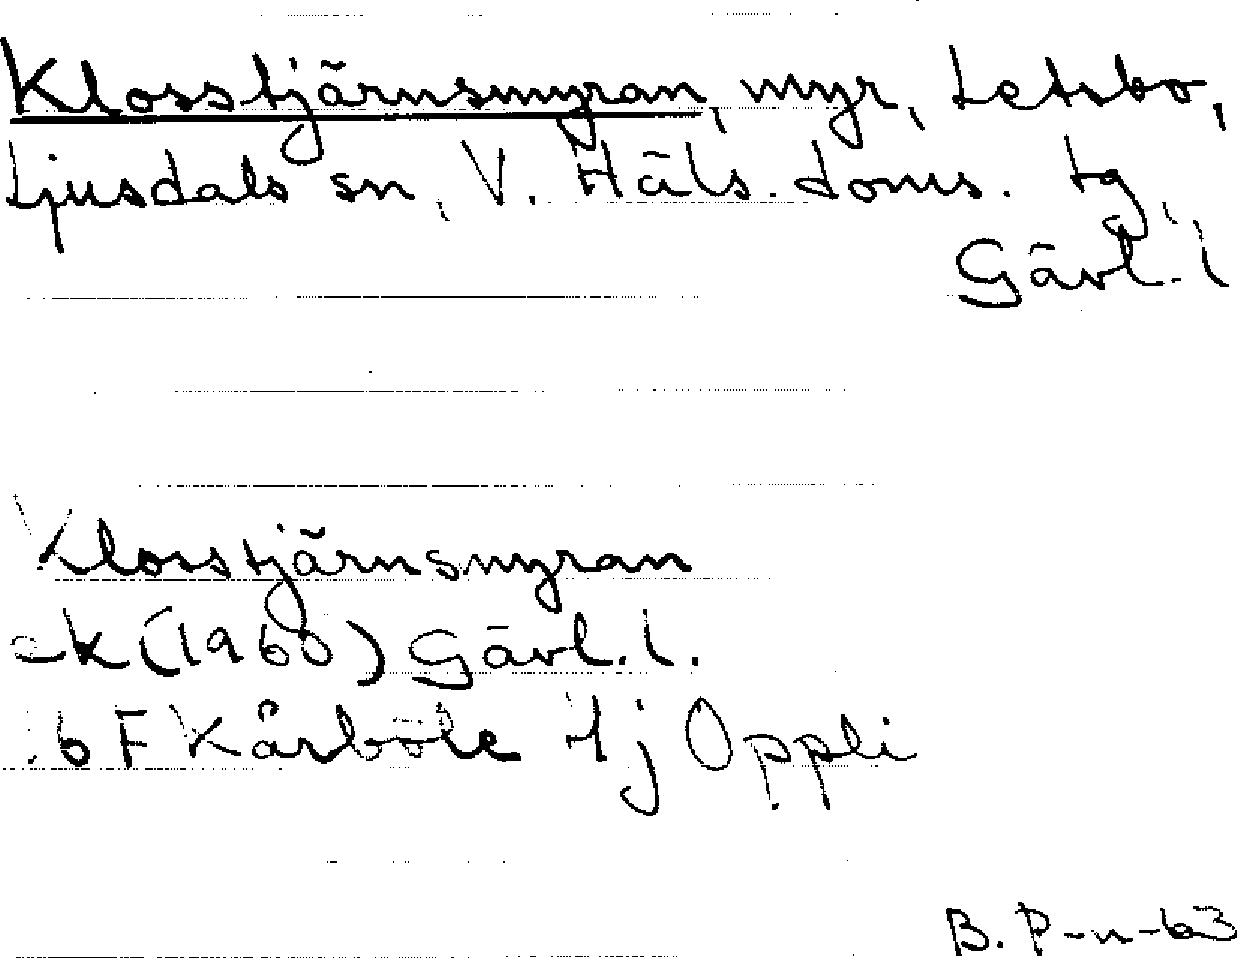 Klosstjärnsmyran, myr, Letsbo,
Ljusdals sn, V. Häls. doms. tg,
Gävl. l
Klosstjärnsmyran
ek (1960) Gävl. l.
16 F Kårböle Hj Oppli
B. P-n-63